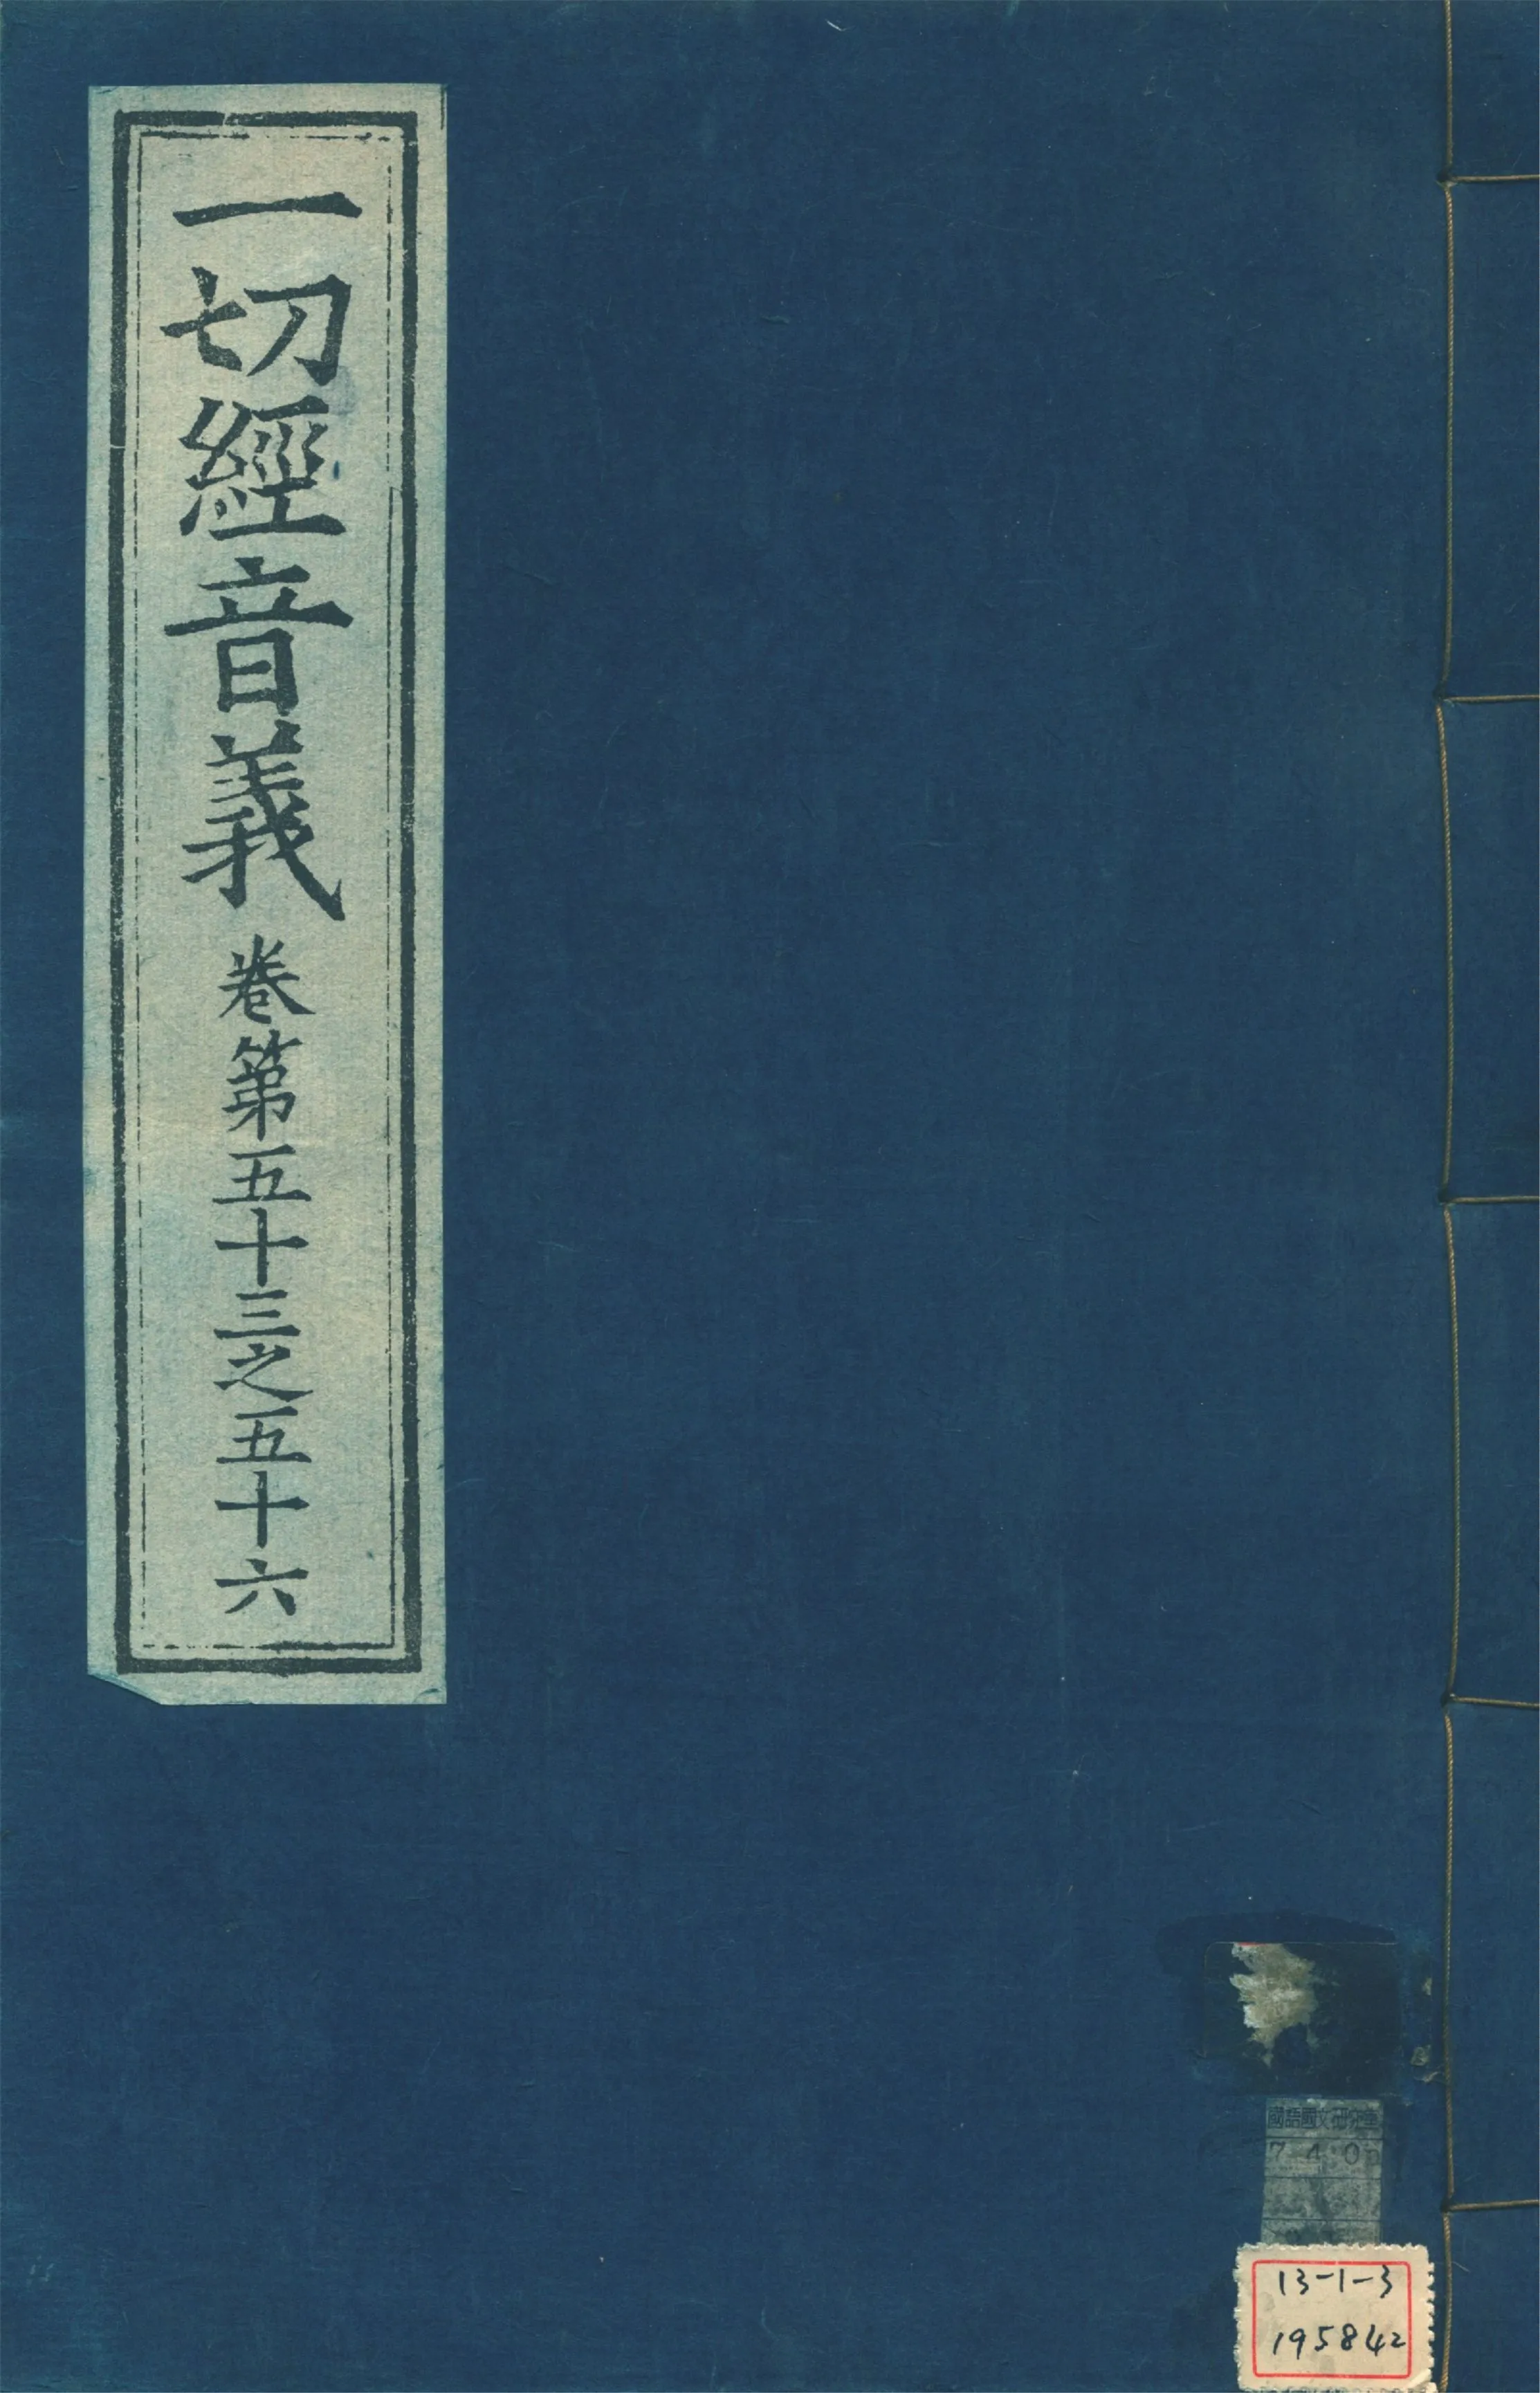 一切經音義 卷第五十三之五十六
國語國文研究室
7 4 0
13-1-3
195842